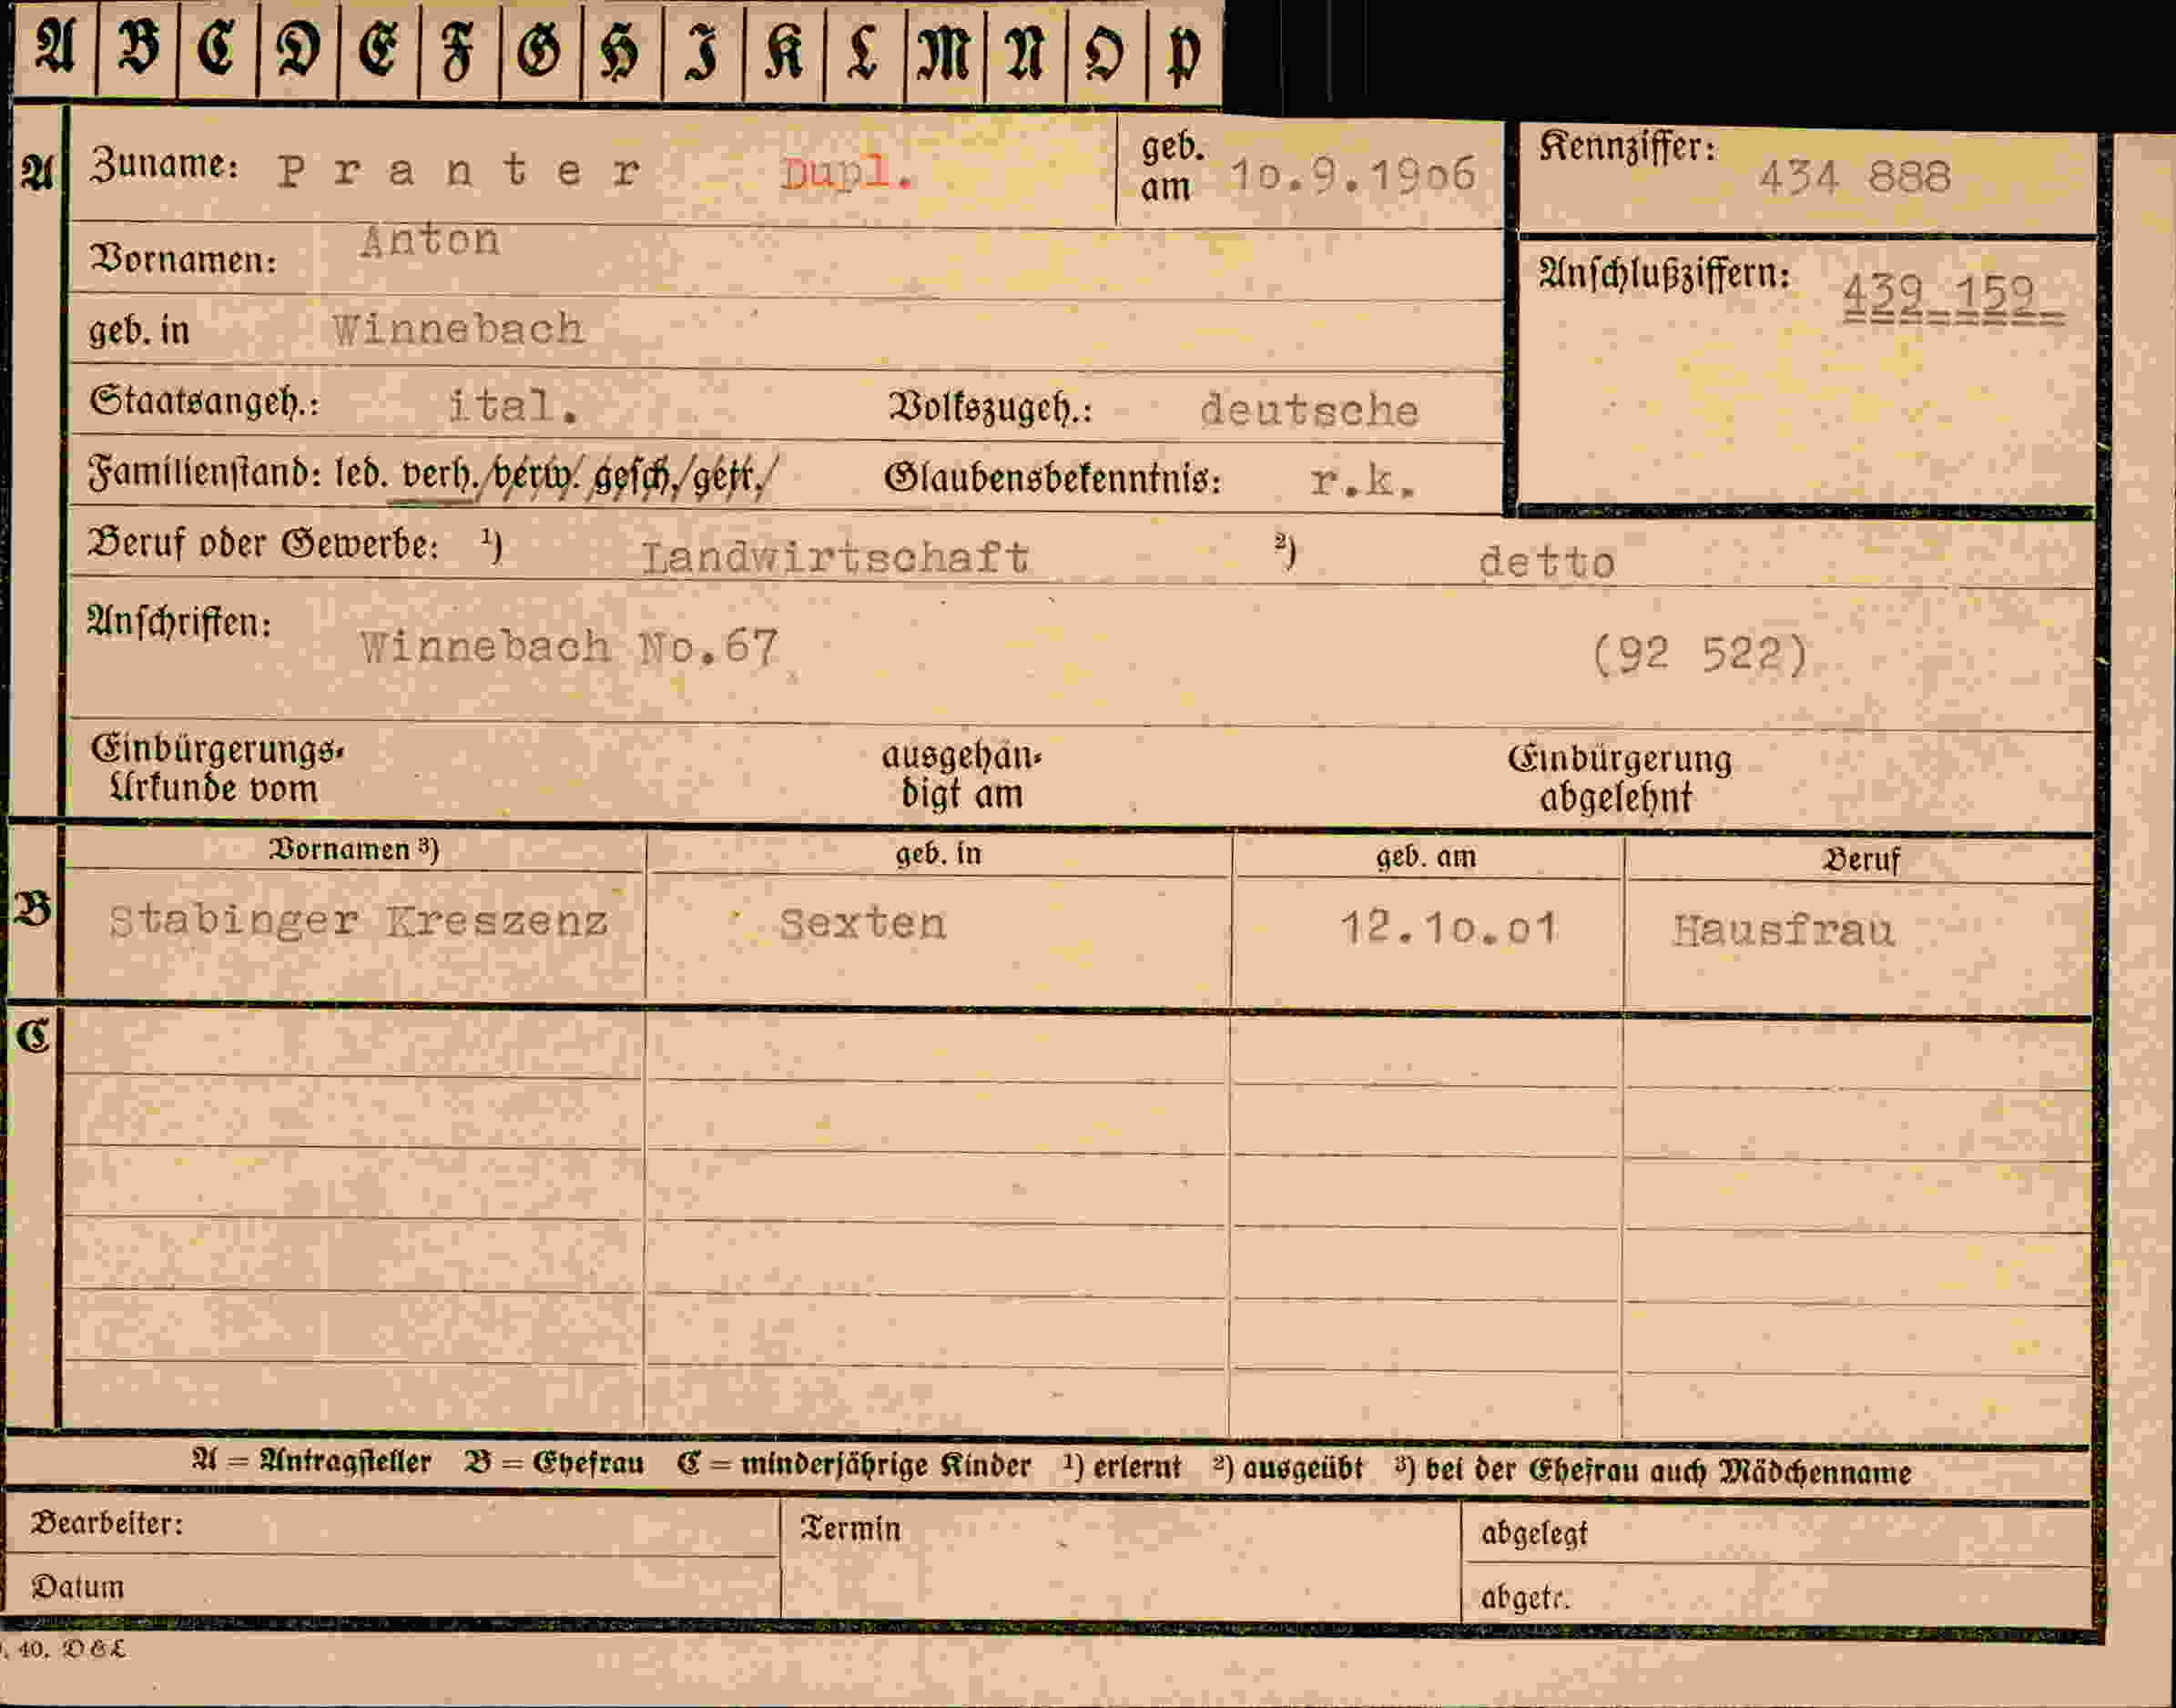 A B C D E F G H I K L M N O P
A Zuname: Pranter Dupl. geb. am 10.9.1906 Kennziffer: 434 888
Vornamen: Anton
Anschlußziffern: 439 159
geb. in Winnebach
Staatsangeh.: ital. Volkszugeh.: deutsche
Familienstand: led. verh./verw. gesch./getr./ Glaubensbekenntnis: r.k.
Beruf oder Gewerbe: ¹) Landwirtschaft ²) detto
Anschriften: Winnebach No.67 (92 522)
Einbürgerungs- ausgehän- Einbürgerung
Urkunde vom digt am abgelehnt
Vornamen ³) geb. in geb. am Beruf
B Stabinger Kreszenz Sexten 12.10.01 Hausfrau
C
A = Antragsteller B = Ehefrau C = minderjährige Kinder ¹) erlernt ²) ausgeübt ³) bei der Ehefrau auch Mädchenname
Bearbeiter: Termin abgelegt
Datum abgetr.
. 40. D & L